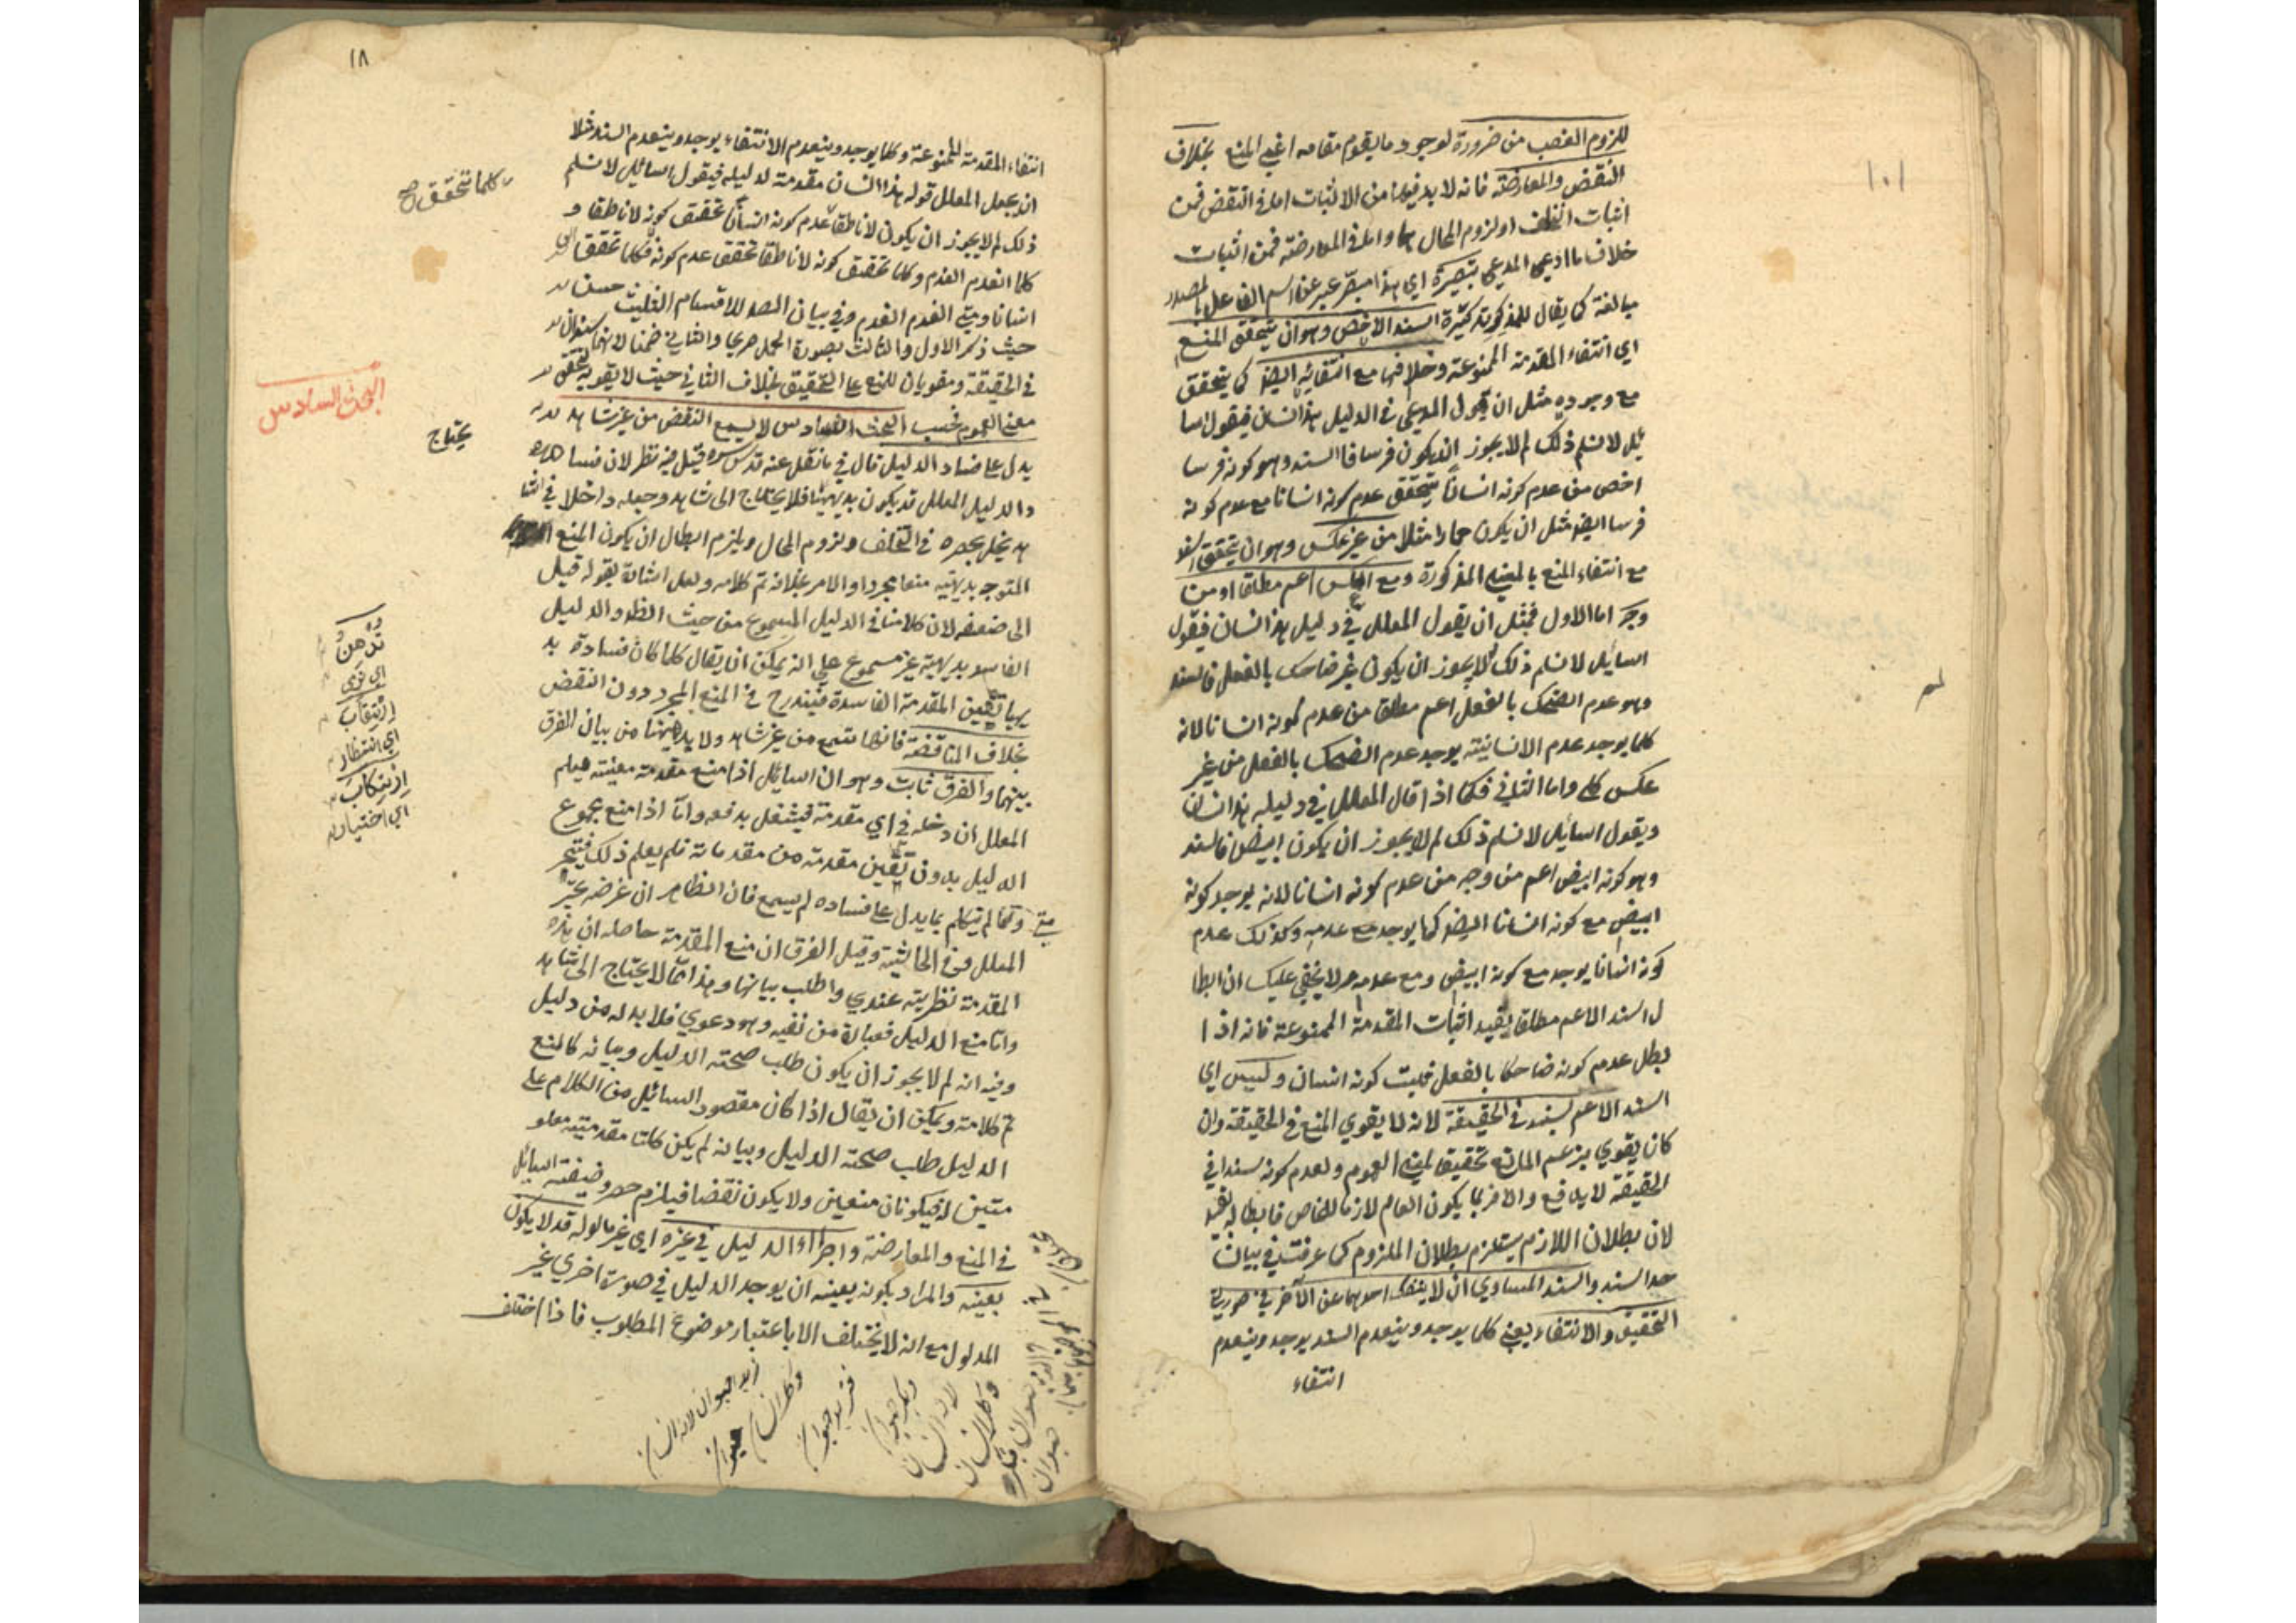 للزوم الغصب من ضرورة لوجود ما يقوم مقامه اعني المنع بخلاف
النقض والمعارضة فانه لا بد فيهما من الاثبات اما في النقض فمن
اثبات التخلف او لزوم المحال واما في المعارضة فمن اثبات
خلاف ما ادعى المدعي تبصرة اي هذا مبصر عبر عن اسم الفاعل بالمصدر
مبالغة كما يقال للمذكر تذكرة السند الاخص وهو ان يتحقق المنع
اي انتفاء المقدمة الممنوعة وخلافها مع انتفائه ايضا كما يتحقق
مع وجوده مثل ان يقول المدعي في الدليل هذا انسان فيقول السا
ئل لا نسلم ذلك لم لا يجوز ان يكون فرسا فالسند وهو كونه فرسا
اخص من عدم كونه انسانا يتحقق عدم كونه انسانا مع عدم كونه
فرسا ايضا مثل ان يكون حمارا مثلا من غير عكس وهو ان يتحقق السند
مع انتفاء المنع بالمعنى المذكورة ومع العكس اعم مطلقا او من
وجه اما الاول فمثل ان يقول المعلل في دليله هذا انسان فيقول
السائل لا نسلم ذلك لم لا يجوز ان يكون غير ضاحك بالفعل فالسند
وهو عدم الضحك بالفعل اعم مطلقا من عدم كونه انسانا لانه
كلما يوجد عدم الانسانية يوجد عدم الضحك بالفعل من غير
عكس كلي واما الثاني فكما اذا قال المعلل في دليله هذا انسان
ويقول السائل لا نسلم ذلك لم لا يجوز ان يكون ابيض فالسند
وهو كونه ابيض اعم من وجه من عدم كونه انسانا لانه يوجد كونه
ابيض مع كونه انسانا ايضا كما يوجد مع عدمه وكذلك عدم
كونه انسانا يوجد مع كونه ابيض ومع عدمه ولا يخفى عليك ان ابطا
ل السند الاعم مطلقا يفيد اثبات المقدمة الممنوعة فانه اذا
بطل عدم كونه ضاحكا بالفعل فيثبت كونه انسان وليس اي
السند الاعم بسند في الحقيقة لانه لا يقوي المنع في الحقيقة وان
كان يقوي بزعم المانع تحقيقا لمعنى العموم ولعدم كونه سندا في
الحقيقة لا يدفع والا فربما يكون العام لازما للخاص فابطاله يفيد
لان بطلان اللازم يستلزم بطلان الملزوم كما عرفت في بيان
حد السند والسند المساوي ان لا ينفك احدهما عن الآخر في صورتي
التحقيق والانتفاء يعني كلما يوجد وينعدم السند يوجد وينعدم
انتفاء
١٨
انتفاء المقدمة الممنوعة وكلما يوجد وينعدم الانتفاء يوجد وينعدم السند مثلا
ان يجعل المعلل قوله هذا انسان مقدمة لدليله فيقول السائل لا نسلم
ذلك لم لا يجوز ان يكون لا ناطقا عدم كونه انسانا تحقق كونه لا ناطقا و
كلما انعدم انعدم وكلما تحقق كونه لا ناطقا تحقق عدم كونه فكلما تحقق
انسانا ومتى انعدم انعدم وفي بيان المص للاقسام الثلث حسن
حيث ذكر الاول والثالث بصورة الجمل صريحا والثاني ضمنا لانهما سندان
في الحقيقة ومقويان للمنع على التحقيق بخلاف الثاني حيث لا يقويه لتحقق
معنى العموم فحسب البحث السادس لا يسمع النقض من غير شاهد
يدل على فساد الدليل قال في ما نقل عنه قدس سره قيل فيه نظر لان فساد
والدليل المعلل قد يكون بديهيا فلا يحتاج الى شاهد وجعله داخلا في الشا
هد يخل بحصره في التخلف ولزوم المحال ويلزم ابطال ان يكون المنع
المتوجه بديهية منعا مجردا والامر بخلافه تم كلامه ولعل اشارة بقوله قيل
الى ضعفه لان كلامنا في الدليل المسموع من حيث الظ والدليل
الفاسد بديهية غير مسموع على انه يمكن ان يقال كلما كان فساده بد
يهيا يتعين المقدمة الفاسدة فيندرج في المنع المجرد دون النقض
بخلاف المناقضة فانها تسمع من غير شاهد ولا بد ههنا من بيان الفرق
بينهما والفرق ثابت وهو ان السائل اذا منع مقدمة معينة فيعلم
المعلل ان دخله في اي مقدمة فيشتغل بدفعه واما اذا منع مجموع
الدليل بدون تعين مقدمة من مقدماته فلم يعلم ذلك فيتحير
فمتى لم يتكلم بما يدل على فساده لم يسمع فان الظاهر ان غرضه تحير
المعلل من في الحاشية وقيل الفرق ان منع المقدمة حاصله ان هذه
المقدمة نظرية عندي واطلب بيانها وهذا مما لا يحتاج الى شاهد
واما منع الدليل فعبارة من نفيه وهو دعوى فلا بد له من دليل
وفيه انه لم لا يجوز ان يكون طلب صحة الدليل وبيانه كالمنع
تم كلامه ويمكن ان يقال اذا كان مقصود السائل من الكلام على
الدليل طلب صحة الدليل وبيانه لم يكن كلتا مقدمتيه معلو
متين له فيكونان منعين ولا يكون نقضا فيلزم حصر وظيفة السائل
في المنع والمعارضة واجراء الدليل في غيره اي غير مدلوله قد لا يكون
بعينه والمراد بكونه بعينه ان يوجد الدليل في صورة اخرى غير
المدلول مع انه لا يختلف الا باعتبار موضوع المطلوب فاذا اختلف
كلما تحقق صح
البحث السادس
يحتاج
اي قوى
ارتقاب
اي انتظار
ارتكاب
اي اختيار
زيد حيوان لانه انسان
وكل انسان حيوان
فزيد حيوان